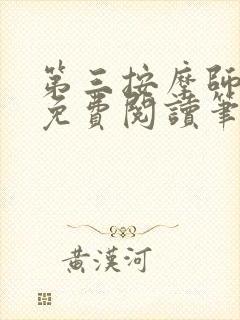 第三按摩師
免費閱讀筆
黃漢河